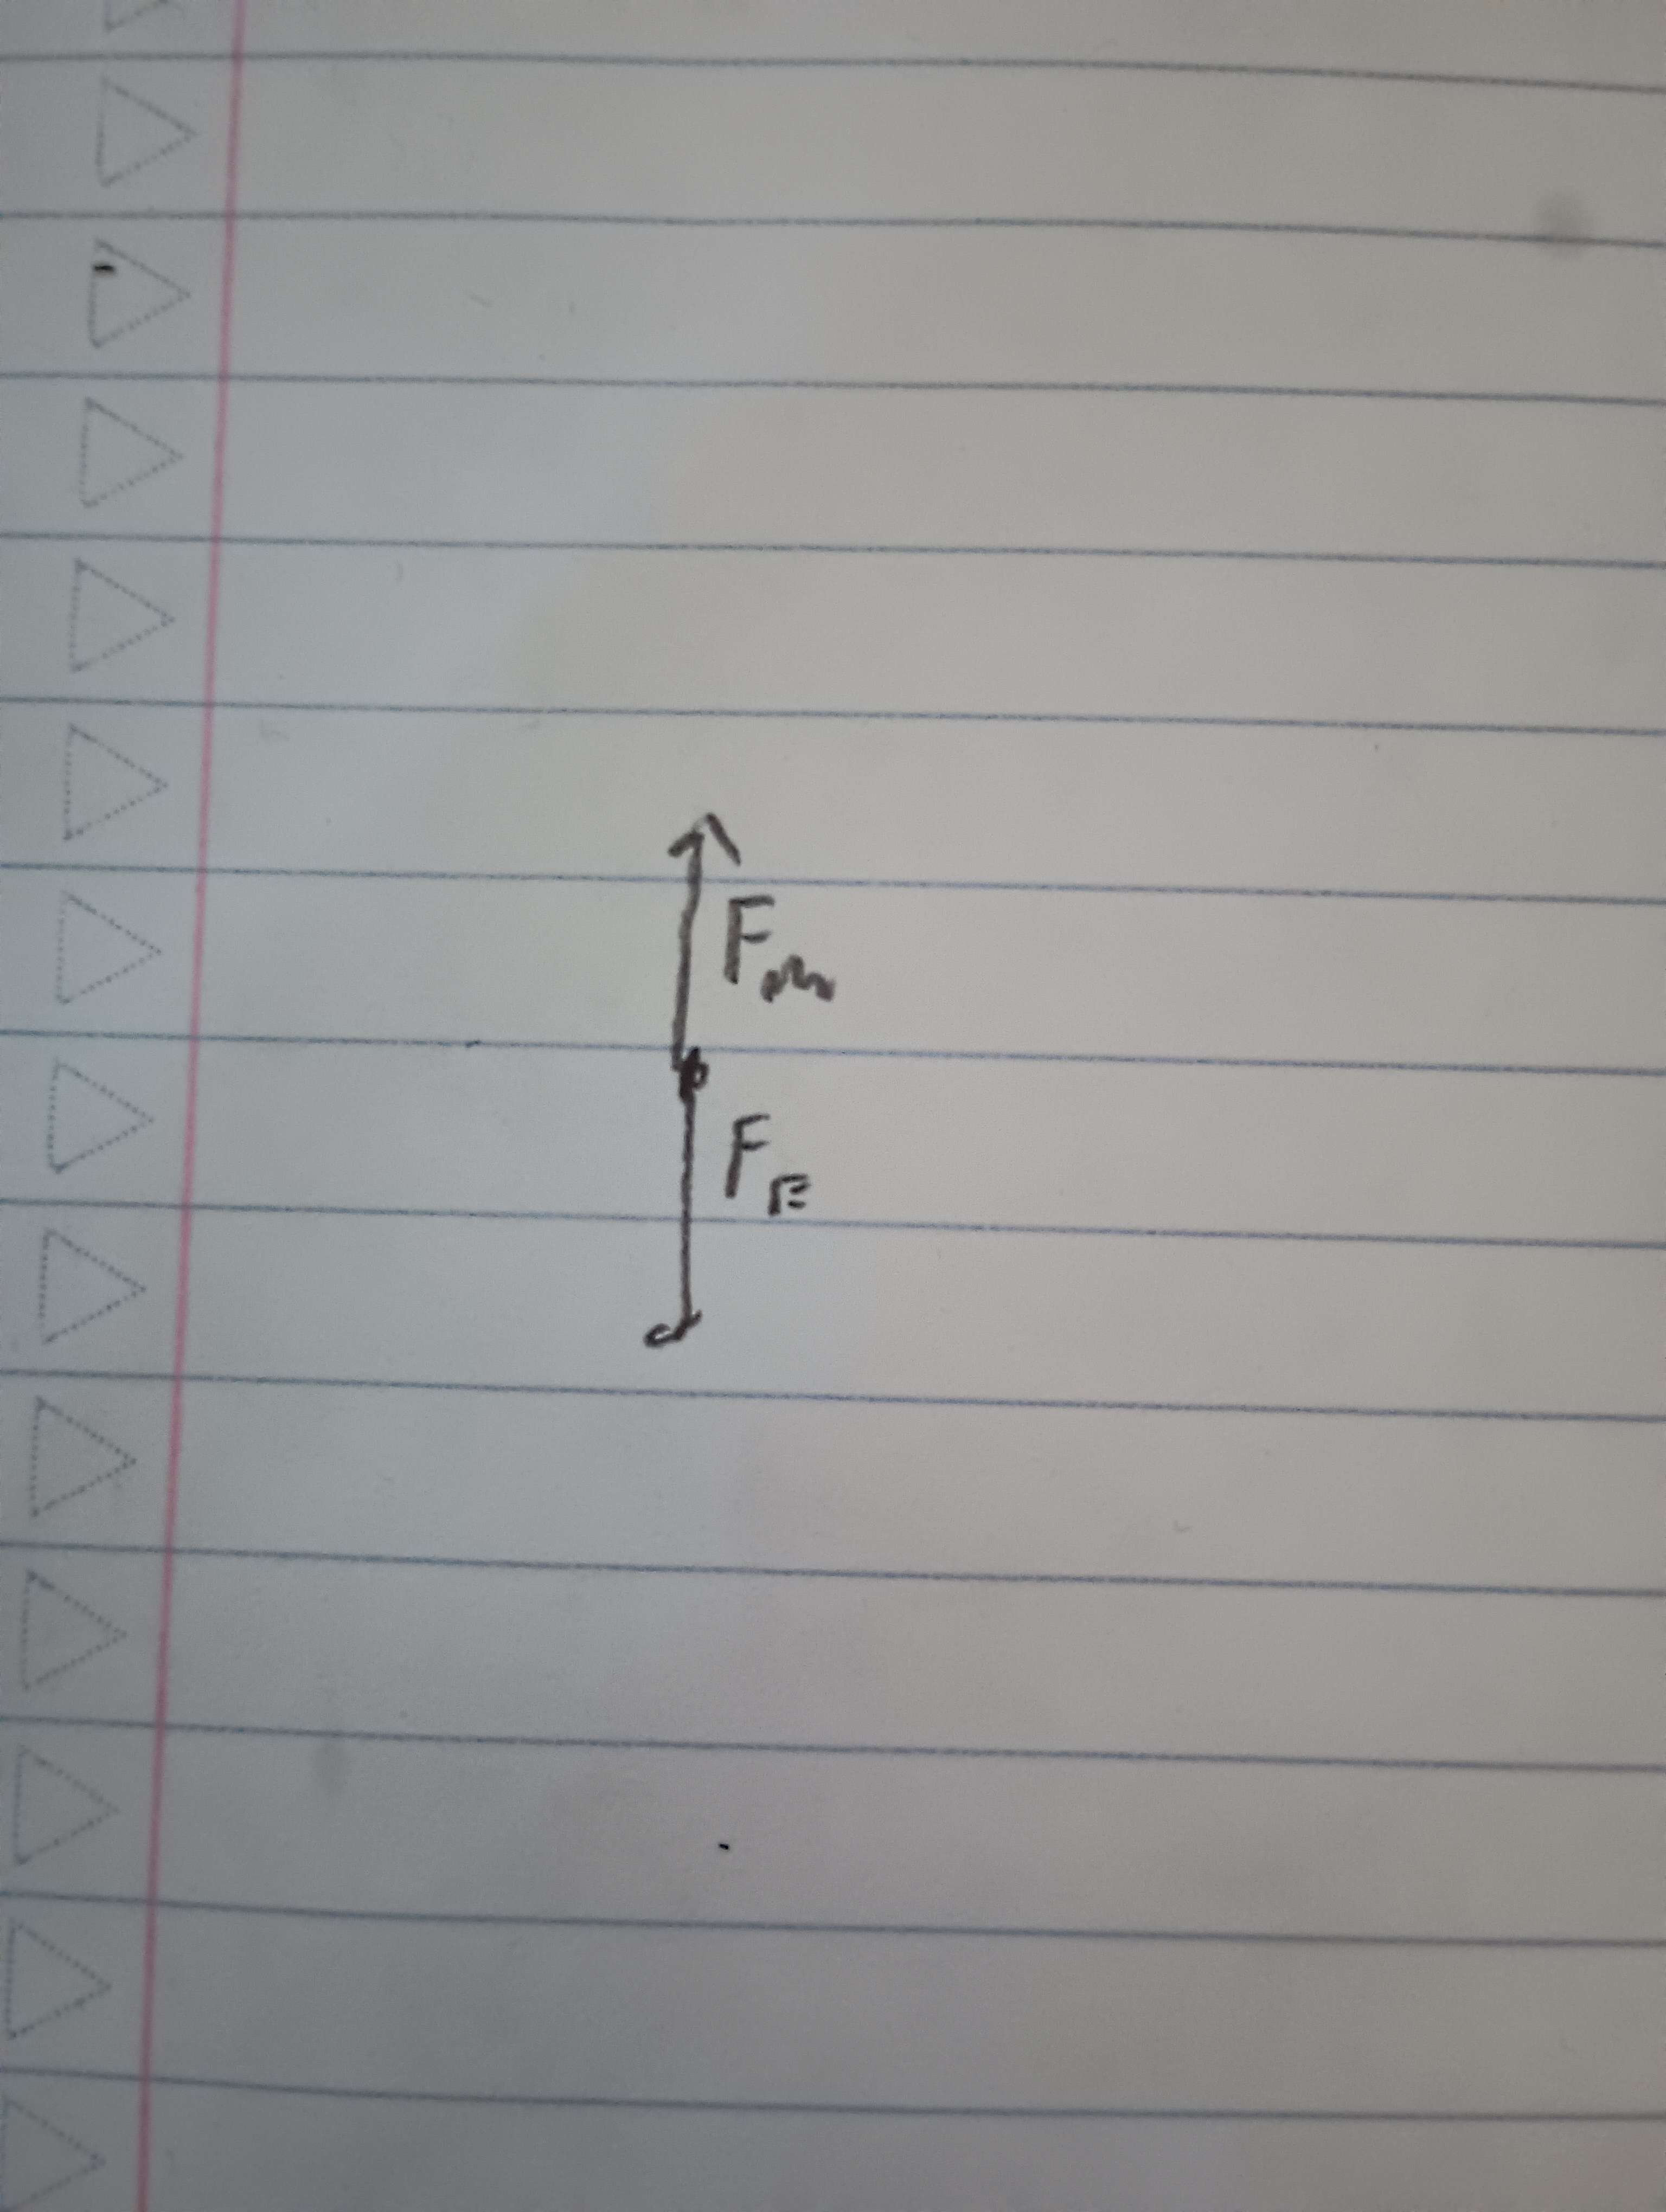 Fm
FE